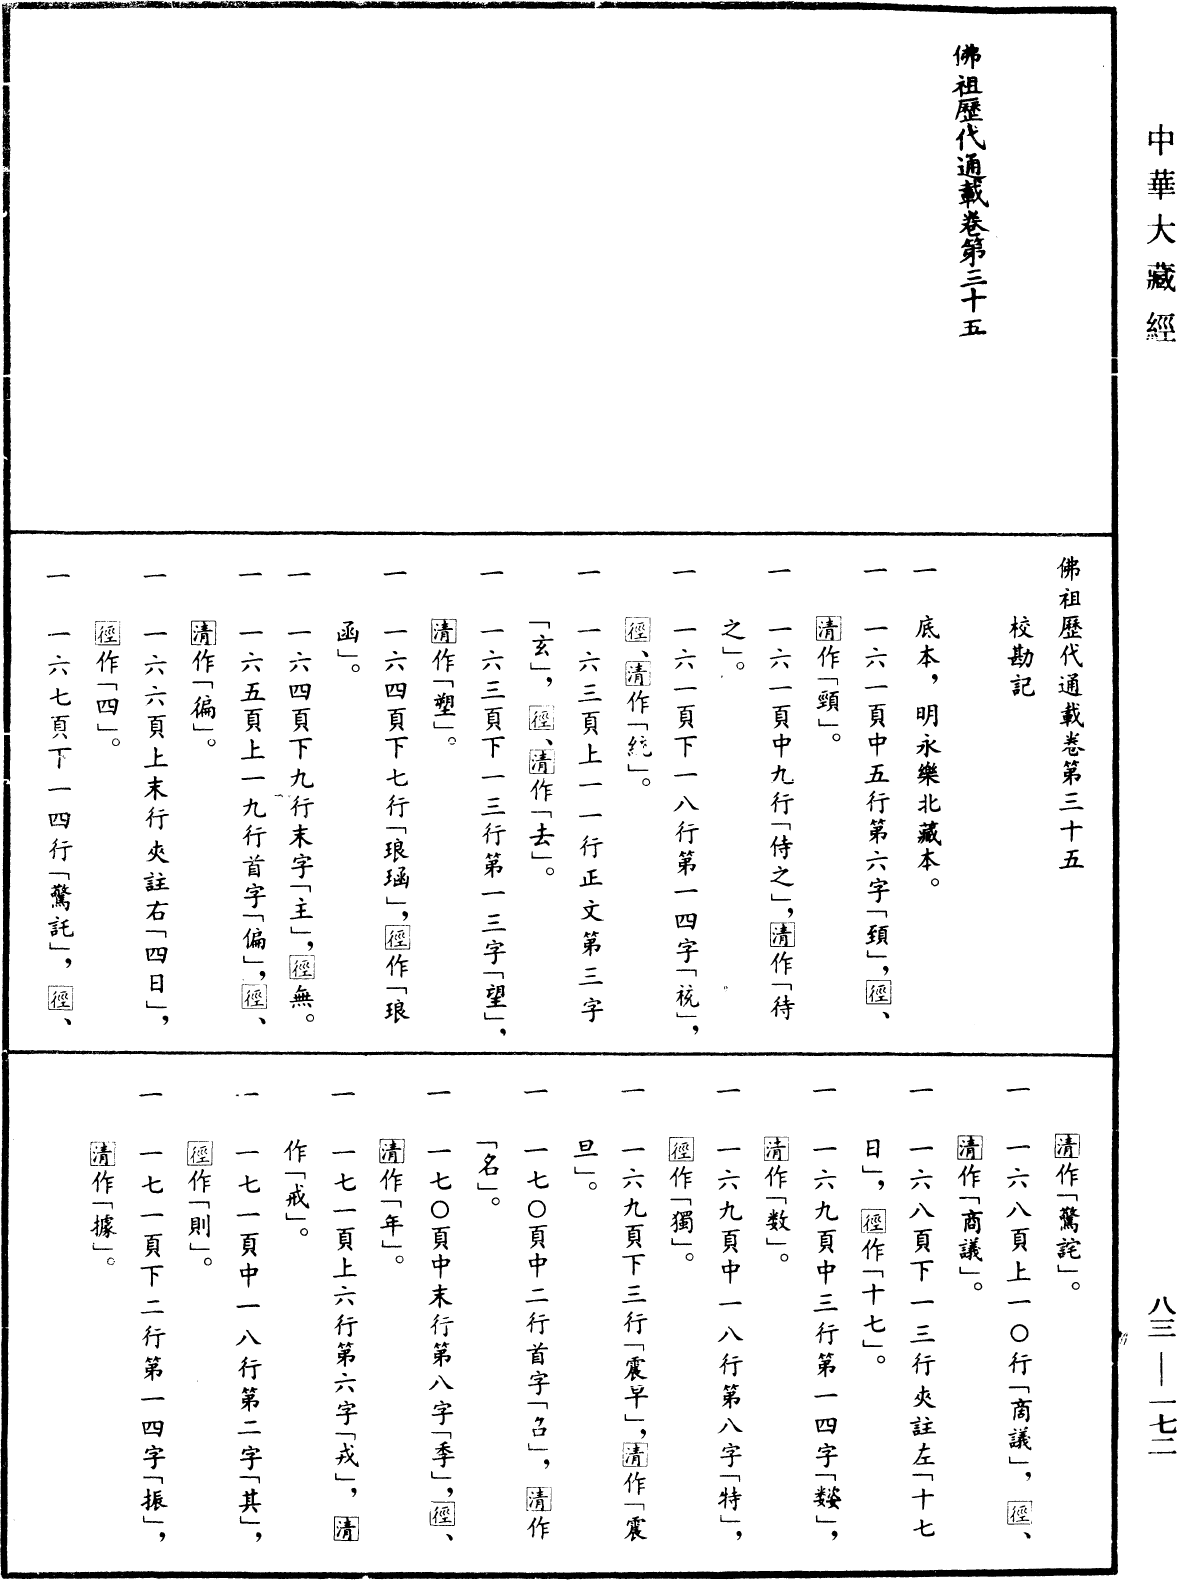 中華大藏經
佛祖歷代通載卷第三十五
佛祖歷代通載卷第三十五
校勘記
一　底本，明永樂北藏本。
一　一六一頁中五行第六字「頚」，徑、
清作「頸」。
一　一六一頁中九行「侍之」，清作「待
之」。
一　一六一頁下一八行第一四字「䘪」，
徑、清作「統」。
一　一六三頁上一一行正文第三字
「玄」，徑、清作「去」。
一　一六三頁下一三行第一三字「望」，
清作「塑」。
一　一六四頁下七行「琅𤨏」，徑作「琅
函」。
一　一六四頁下九行末字「主」，徑無。
一　一六五頁上一九行首字「偏」，徑、
清作「徧」。
一　一六六頁上末行夾註右「四日」，
徑作「四」。
一　一六七頁下一四行「驚託」，徑、
清作「驚詫」。
一　一六八頁上一〇行「啇議」，徑、
清作「商議」。
一　一六八頁下一三行夾註左「十七
日」，徑作「十七」。
一　一六九頁中三行第一四字「嫯」，
清作「数」。
一　一六九頁中一八行第八字「特」，
徑作「獨」。
一　一六九頁下三行「震早」，清作「震
旦」。
一　一七〇頁中二行首字「召」，清作
「名」。
一　一七〇頁中末行第八字「季」，徑、
清作「年」。
一　一七一頁上六行第六字「戎」，清
作「戒」。
一　一七一頁中一八行第二字「其」，
徑作「則」。
一　一七一頁下二行第一四字「振」，
清作「據」。
八三—一七二